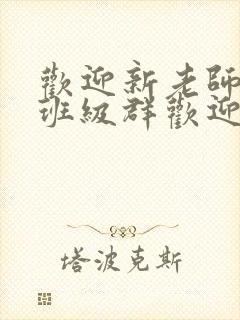 歡迎新老師
班級群歡迎
塔波克斯